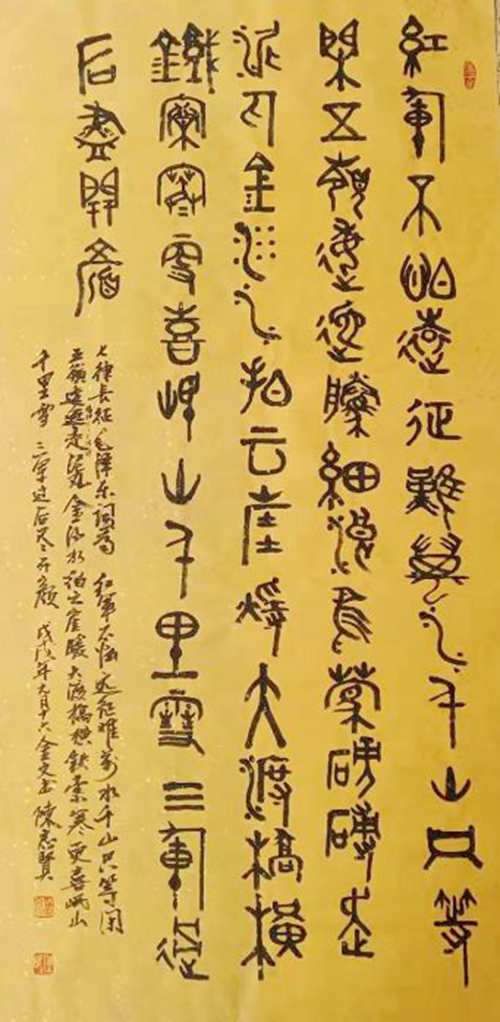 紅軍不怕遠征難萬水千山只等
閑五嶺逶迤騰細浪烏蒙磅礴走
泥丸金沙水拍云崖暖大渡橋橫
鐵索寒更喜岷山千里雪三軍過
后盡開顏
七律長征 毛澤東詞 紅軍不怕遠征難萬水千山只等闲
五嶺逶迤走泥丸金沙水拍云崖暖大渡橋橫鉄索寒更喜岷山
千里雪 三军过后尽开颜 戊戌年九月十六金文書 陳志賢